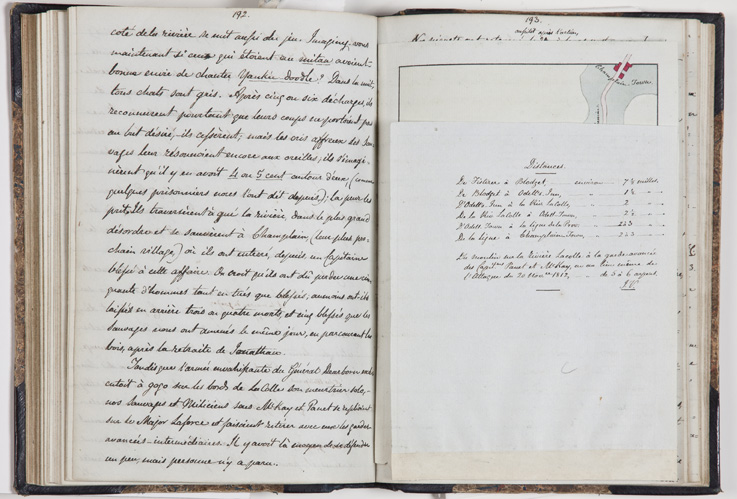 192.
coté de la rivière se mit aussi du jeu. Imaginez, vous
maintenant si ceux qui étoient au mitan avoient
bonne envie de chanter Yankie doodle? Dans la nuit,
tous chats sont gris. Après cinq ou six décharges, ils
reconnurent pourtant que leurs coups ne portoient pas
au but désiré,- ils cessèrent; mais les cris affreux des Sau-
vages leur résonnoient encore aux oreilles; ils s'imagi-
nèrent qu'il y en avoit 4 ou 5 cent autour d'eux, (comme
quelques prisonniers nous l'ont dit depuis); la peur les
prit, ils traversèrent à qué la rivière, dans le plus grand
désordre et se sauvèrent à Champlain, (leur plus pro-
chain village,) où ils ont enterré, depuis, un Capitaine
blessé à cette affaire. On croit qu'ils ont dû perdre une cin-
quante d'hommes tant en tués que blessés; au moins ont-ils
laissés en arrière trois ou quatre morts, et cinq blessés que les
Sauvages nous ont amenés le même jour, en parcourant les
bois, après la retraite de Jonathan.
Tandis que l'armée envahissante du Général Dearborn exé-
cutoit à gogo sur les bords de LaColle son meurtrier solo,-
nos Sauvages et Miliciens sous McKay et Panet se replioient
sur le Major Laforce et faisoient retirer avec eux les gardes
avancés-intermédiaires. Il y avoit là moyen de se défendre
un peu, mais personne n'y a paru.
193.
aussitôt après l'action
Champlain Town
Distances.
De Fisher à Blodget, environ 7½ milles.
De Blodget à Odell's Inn, 1½
D'Odell's Inn à la Rive LaColle, 2
De la Rive LaColle à Odell Town, 2½
D'Odell Town à la ligne de la Prov. 2 à 3
De la ligne à Champlain Town, 2 à 3
Du moulin sur la Rivière Lacolle à la garde avancée
des Capit.nes Panet et McKay, ou au lieu même de
l'Attaque du 20 Nov.re 1812, de 5 à 6 arpens.